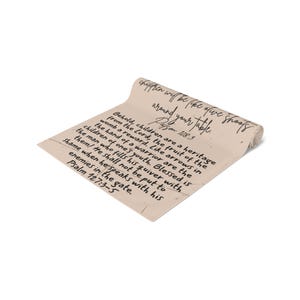 children will be like olive shoots
around your table
Psalm 128:3
Behold, children are a heritage
from the Lord, the fruit of the
womb a reward. Like arrows in
the hand of a warrior are the
children of one's youth. Blessed is
the man who fills his quiver with
them! He shall not be put to
shame when he speaks with his
enemies in the gate.
Psalm 127:3-5